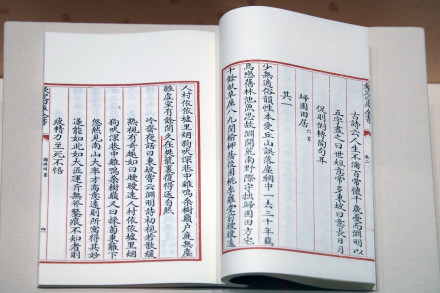 古詩云人生不滿百常懷千歲憂而淵明以
五字盡之曰世短意常多東坡曰意長日月
促則倒轉陶句耳
歸園田居六首
其一
少無適俗韻性本愛丘山誤落塵網中一去三十年羈
鳥戀舊林池魚思故淵開荒南野際守拙歸園田方宅
十餘畝草屋八九間榆柳蔭後園桃李羅堂前曖曖遠
人村依依墟里烟狗吠深巷中雞鳴桑樹巔戶庭無塵
雜虛室有餘閒久在樊籠裏復得返自然
冷齋夜話曰東坡嘗云淵明詩初視若散緩
熟視有奇趣如曰曖曖遠人村依依墟里烟
狗吠深巷中雞鳴桑樹巔又曰採菊東籬下
悠然見南山大率才高意遠則所寓得其妙
遂能如此如大匠運斤無斧鑿痕不知者則
疲精力至死不悟